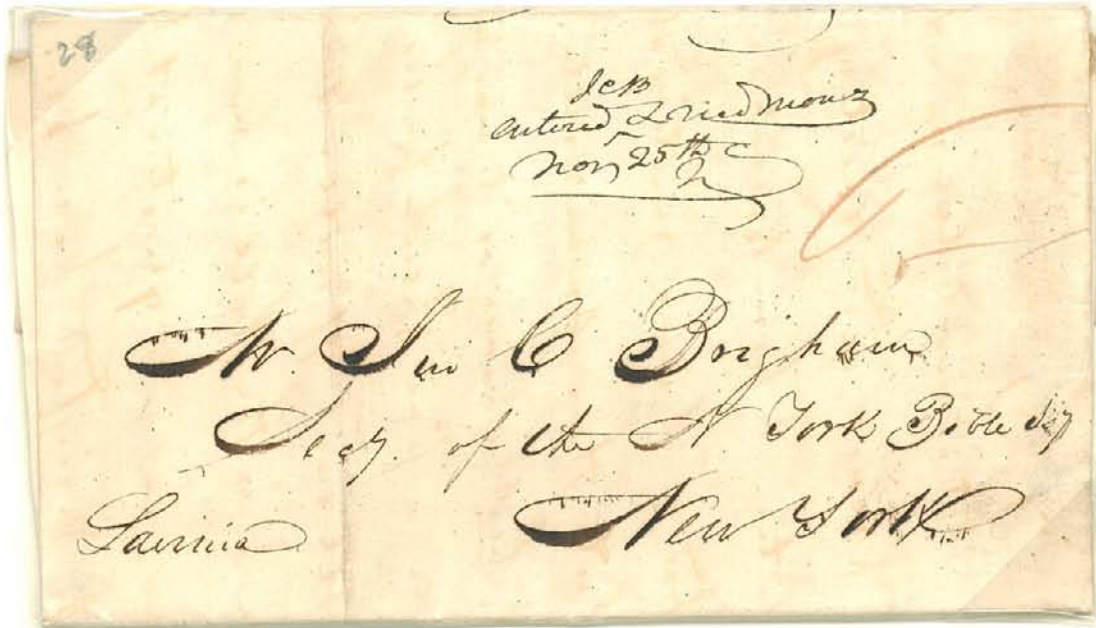 28
JCB
entered &
Nov 25th
Mr. Jno C Brigham
Secy. of the N York Bible Socy
New York
Lavinia